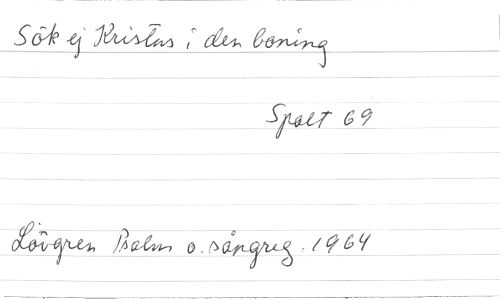 Sök ej Kristus i den boning
Spalt 69
Lövgren Psalm o. sångreg. 1964